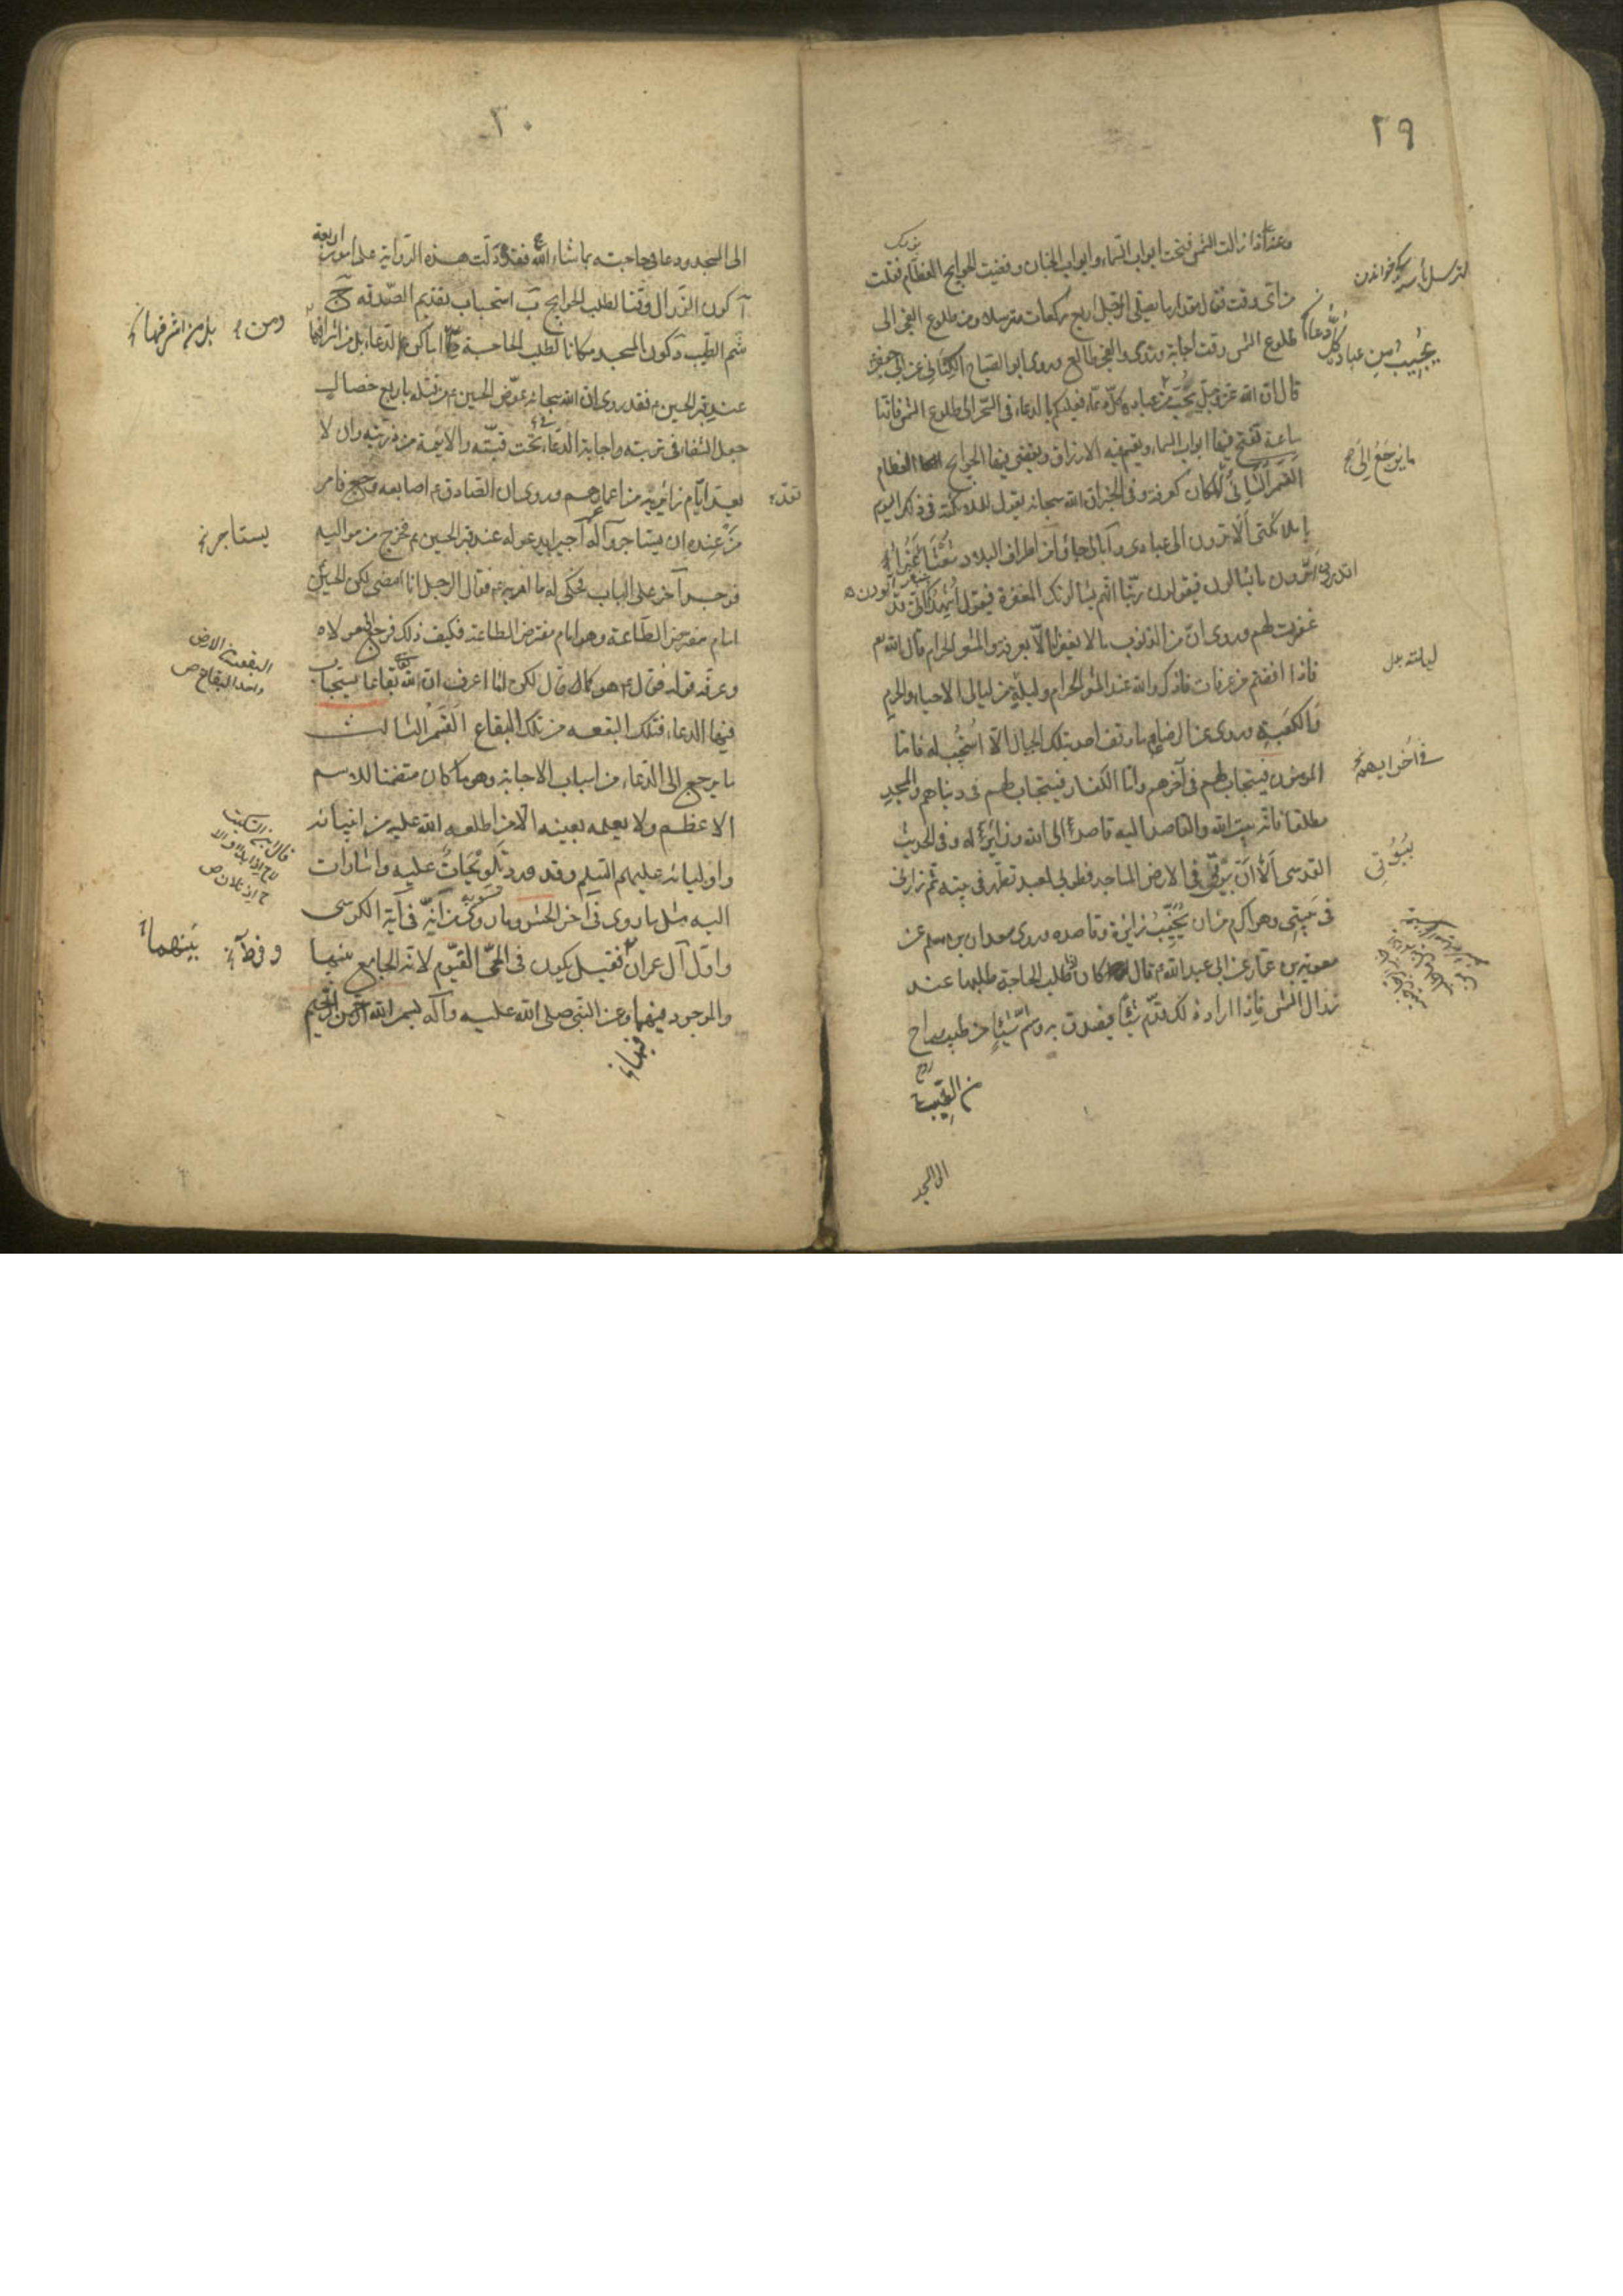 ٢٩
وعنه ع اذا زالت الشمس فتحت ابواب السماء وابواب الجنان وقضيت الحوايج العظام فقلت
من اى وقت فقال مقدار ما يصلى الرجل اربع ركعات مترسلا ومن طلوع الفجر الى
طلوع الشمس وقت اجابة وروى ابو الصباح الكنانى عن ابى جعفر
قال ان الله عز وجل يحب من عباده كل دعاء فعليكم بالدعاء فى السحر الى طلوع الشمس فانها
ساعة تفتح فيها ابواب السماء ويقسم فيه الارزاق ويقضى فيها الحوايج العظام
القسم الثانى المكان كعرفة وفى الخبر ان الله سبحانه يقول للملائكة فى ذلك اليوم
يا ملائكتى الا ترون الى عبادى وآمائى جاؤا من اطراف البلاد شعثا غبرا
اتدرون ما يسالون فيقولون ربنا انهم يسالونك المغفرة فيقول اشهدكم انى قد
غفرت لهم وروى ان من الذنوب ما لا يغفر الا بعرفة والمشعر الحرام قال الله تع
فاذا افضتم من عرفات فاذكروا الله عند المشعر الحرام وليلة من ليالى الاحياء والحرم
والكعبة وروى عن الرضا ع ما وقف احد بتلك الجبال الا استجيب له فاما
المومنون فيستجاب لهم فى آخرهم واما الكفار فيستجاب لهم فى دنياهم والمسجد
مطلقا فانه بيت الله والقاصد اليه قاصد الى الله وزائر له وفى الحديث
القدسى الا ان بيوتى فى الارض المساجد فطوبى لعبد تطهر فى بيته ثم زارنى
فى بيتى وهو اكرم من ان يخيب زائره وقاصده وروى سعدان بن مسلم عن
معوية بن عمار عن ابى عبد الله ع قال كان اذا طلب الحاجة طلبها عند
زوال الشمس فاذا اراد ذلك قدم شيئا فيصدق به وشم شيئا من طيب وراح
من الطيب
الى المسجد
يجيب من عباده كل دعاء
ما يرجع الى
فى اخراهم
بيوتى
٣٠
الى المسجد ودعا فى حاجته بما شاء الله فقد دلت هذه الرواية على امور اربعة
آ كون الزوال وقتا لطلب الحوايج ب استحباب تقديم الصدقه ج
شم الطيب د كون المسجد مكانا لطلب الحاجة اماكن الدعاء بل من اشرافها
عند قبر الحسين ع فقد روى ان الله سبحانه عوض الحسين ع من قتله باربع خصال
جعل الشفاء فى تربته واجابة الدعاء تحت قبته والائمة من ذريته وان لا
يعد ايام زائريه من اعمارهم وروى ان الصادق ع اصابعه وجع فامر
من عنده ان يستاجروا له اجيرا يدعو له عند قبر الحسين ع فخرج من مواليه
فوجد آخر على الباب فحكى له ما امر به ع فقال الرجل انا امضى لكن الحسين
امام مفترض الطاعة وهو امام مفترض الطاعة فكيف ذلك فرجع الى مولاه
وعرفه قوله فقال ع هو كما قال لكن اما اعرف ان لله بقاعا يستجاب
فيها الدعاء فتلك البقعه من تلك البقاع القسم الثالث
ما يرجع الى الدعاء من اسباب الاجابة وهو ما كان متضمنا للاسم
الاعظم ولا يعلمه بعينه الا من اطلعه الله عليه من انبيائه
واوليائه عليهم السلم وقد ورد تلويحات عليه واشارات
اليه مثل ما روى فى آخر الحشر وما روى من انه فى آية الكرسى
واول آل عمران فقيل يكون فى الحى القيوم لانه الجامع بينها
والموجود فيهما وعن النبى صلى الله عليه وآله بسم الله الرحمن الرحيم
ومن
بل من اشرفها
تعد
يستاجر
البقعة من الارض
واحد البقاع ص
بينهما
فيها